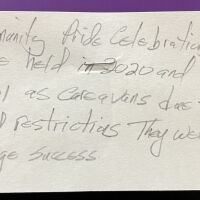 munity Pride Celebration
e held in 2020 and
l as caravans due t
restrictions They we
ge success